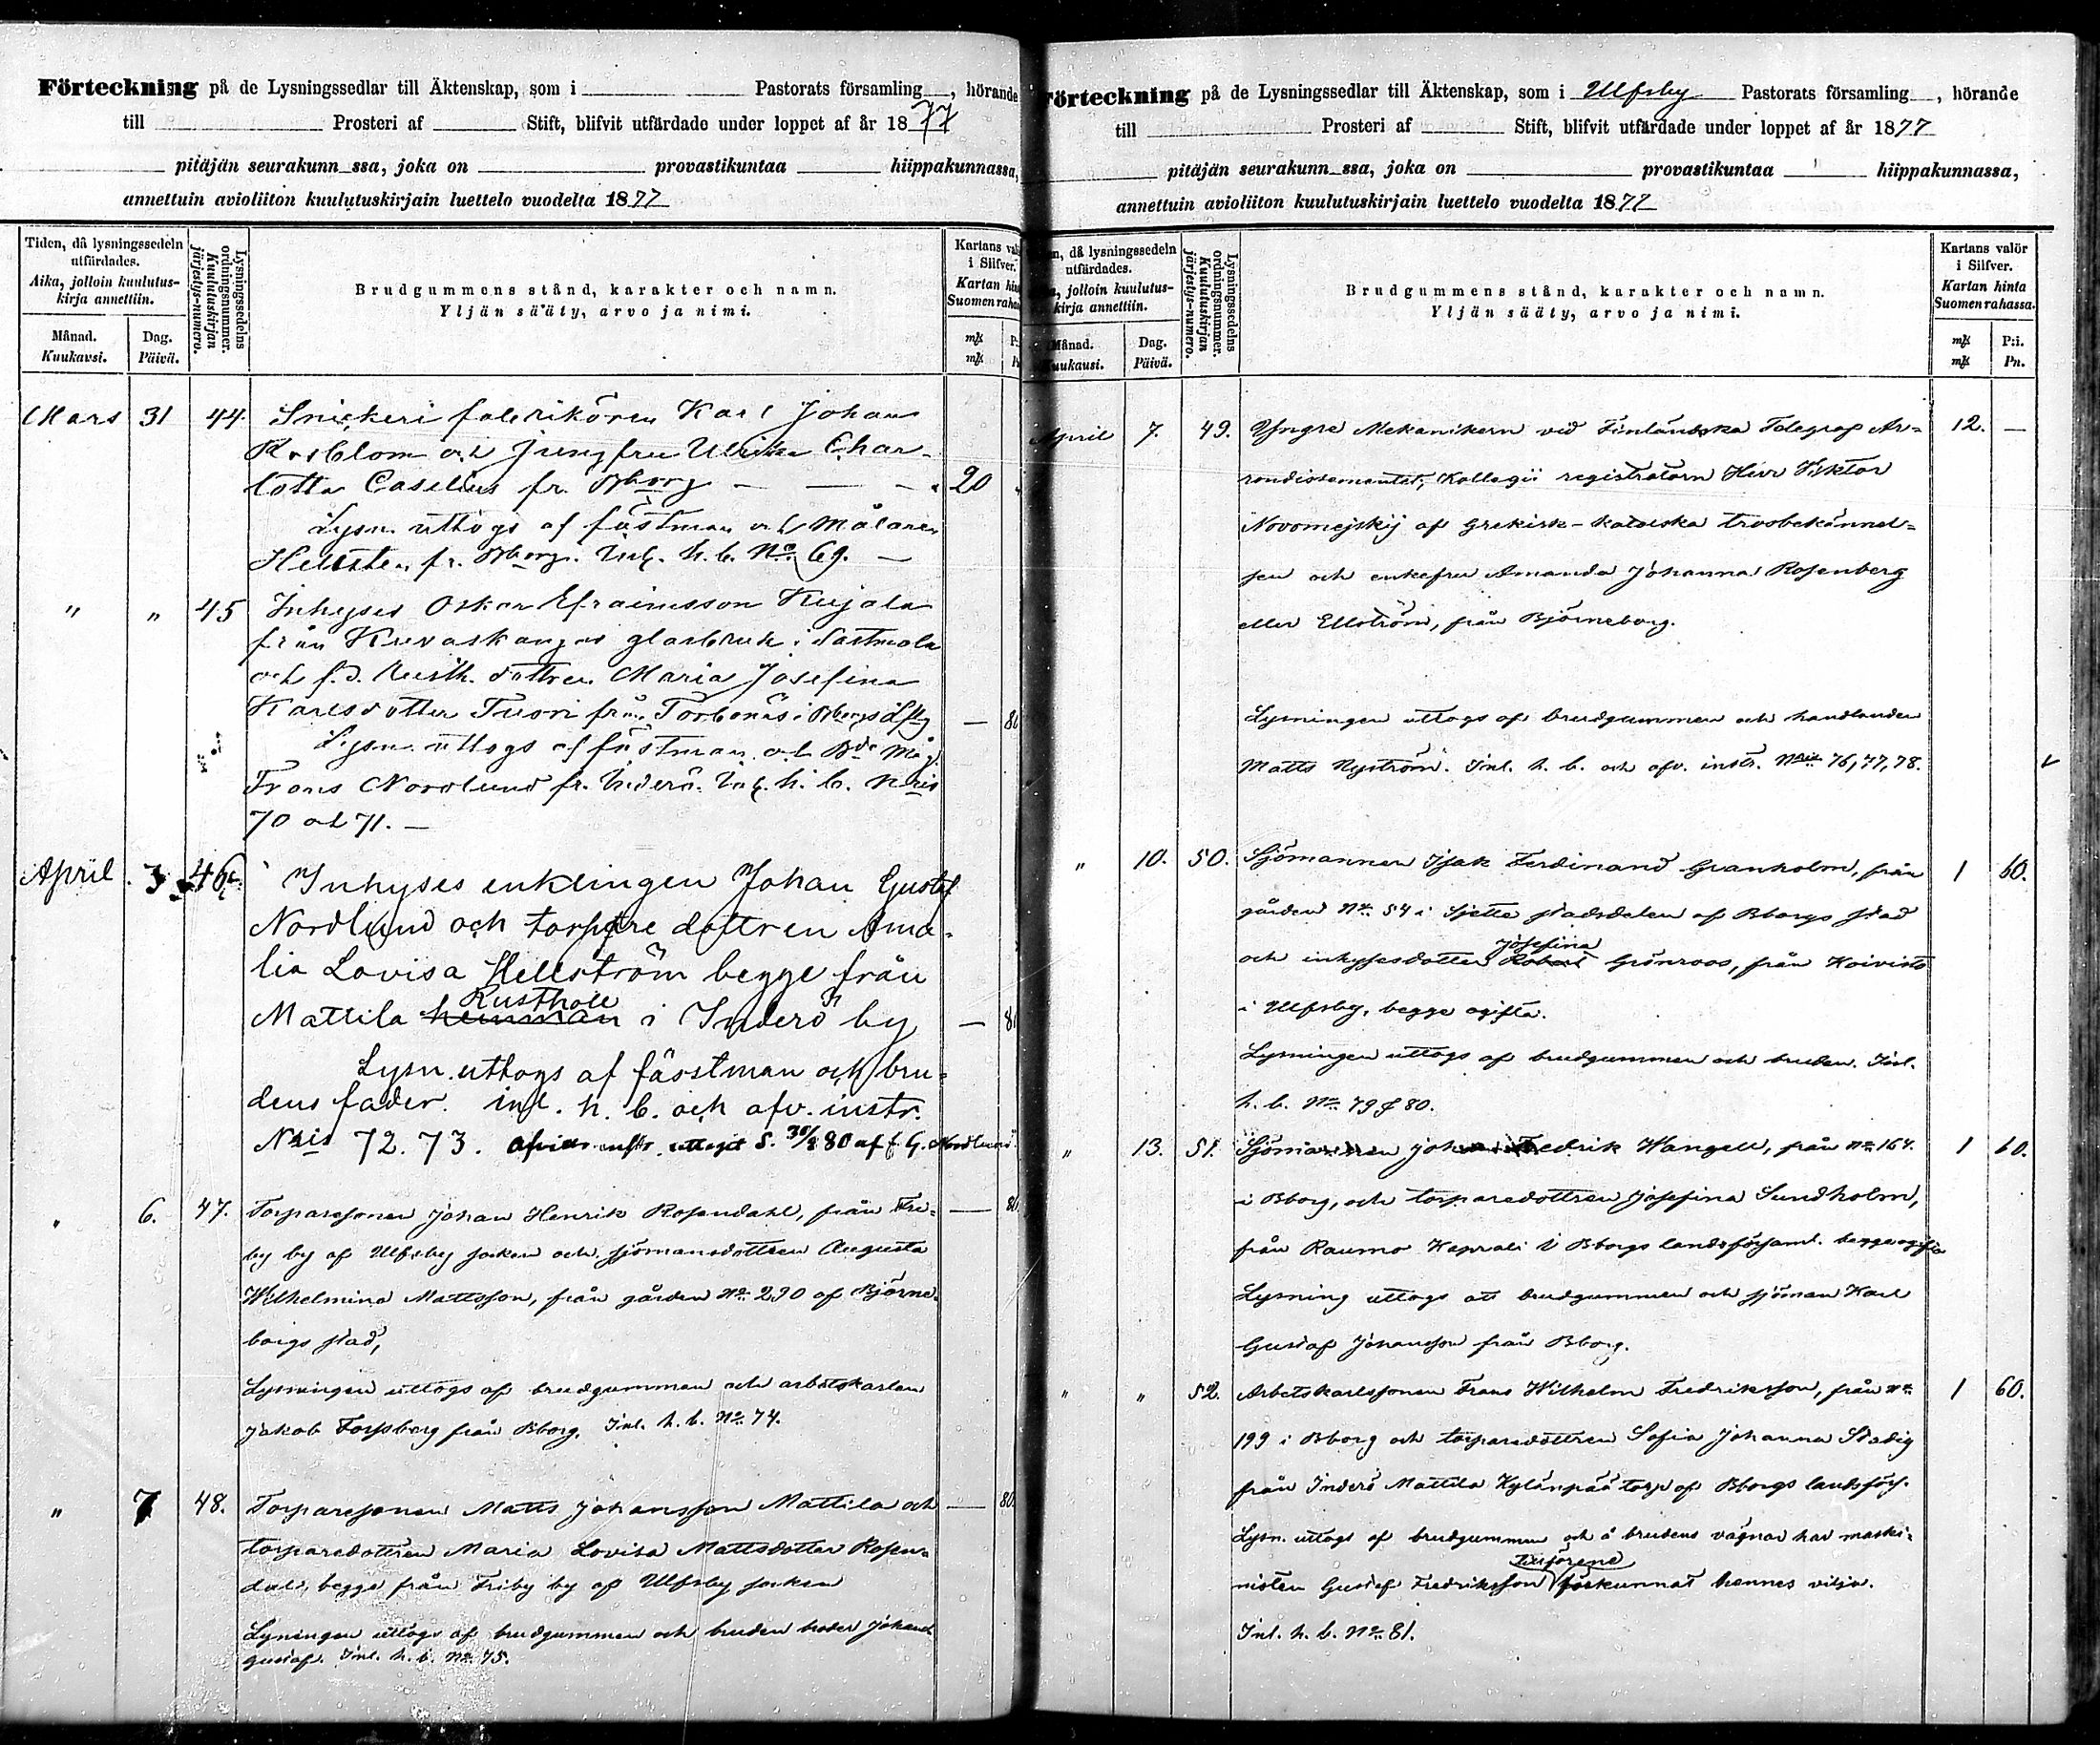 Förteckning på de Lysningssedlar till Äktenskap, som i Pastorats församling, hörande
till Prosteri af Stift, blifvit utfärdade under loppet af år 1877
pitäjän seurakunn ssa, joka on provastikuntaa hiippakunnassa,
annettuin avioliiton kuulutuskirjain luettelo vuodelta 1877
Tiden, då lysningssedeln utfärdades.
Aika, jolloin kuulutuskirja annettiin.
Månad.
Kuukausi.
Dag.
Päivä.
Lysningssedelns ordningsnummer.
Kuulutuskirjan järjestys-numero.
Brudgummens stånd, karakter och namn.
Yljän sääty, arvo ja nimi.
Kartans valör
i Silfver.
Kartan hinta
Suomen rahassa
Mars 31 44 Snickeri fabrikören Karl Johan
Rosblom och Jungfru Ulrika Char-
lotta Caselius fr. Bborg — — 20
Lysn. uttogs af fästman och Målaren
Hellsten fr. Bborg. Inl. h. b. No 69. —
" " 45 Inhyses Oskar Efraimsson Kujala
från Kuvaskangas glasbruk i Sastmola
och f.d. Rusth. dottren Maria Josefina
Karlsdotter Tuori från Torbonäs i Bborgs Lfg — 80
Lysn. uttogs af fästman och Bde Måg
Frans Nordlund fr. Inderö. Inl. h. b. Nris
70 och 71. —
April 3 46 Inhyses enklingen Johan Gustaf
Nordlund och torpare dottren Ama-
lia Lovisa Hellström begge från
Rusthåll
Mattila hemman i Inderö by — 80
Lysn. uttogs af fässtman och bru-
dens fader. inl. h. b. och afv. instr.
Nris 72. 73. uttaget 80 af G. Nordlund
" 6. 47. Torparesonen Johan Henrik Rosendahl, från Fri- — 80.
by by af Ulfsby socken och sjömansdottren Augusta
Wilhelmina Mattsson, från gården No 290 af Björne-
borgs stad,
Lysningen uttogs af brudgummen och arbetskarlen
Jakob Forssberg från Bborg. Inl. h. b. No 74.
" 7 48. Torparesonen Matts Johansson Mattila och — 80.
torparedottren Maria Lovisa Mattsdotter Rosen-
dal, begge från Friby by af Ulfsby socken
Lysningen uttogs af brudgummen och bruden broder Johan
Gustaf. Inl. h. b. No 75.
Förteckning på de Lysningssedlar till Äktenskap, som i Ulfsby Pastorats församling, hörande
till Prosteri af Stift, blifvit utfärdade under loppet af år 1877
pitäjän seurakunn ssa, joka on provastikuntaa hiippakunnassa,
annettuin avioliiton kuulutuskirjain luettelo vuodelta 1877
då lysningssedeln utfärdades.
jolloin kuulutuskirja annettiin.
Månad.
Kuukausi.
Dag.
Päivä.
Lysningssedelns ordningsnummer.
Kuulutuskirjan järjestys-numero.
Brudgummens stånd, karakter och namn.
Yljän sääty, arvo ja nimi.
Kartans valör
i Silfver.
Kartan hinta
Suomen rahassa.
P:i.
Pn.
April 7. 49. Yngre Mekanikern vid Finländska Telegraf Ar- 12. —
rondissementet, Kollegii registratorn Herr Viktor
Novomejskij af Grekisk-Katolska trosbekännel-
sen och enkefru Amanda Johanna Rosenberg
eller Ellström, från Björneborg.
Lysningen uttogs af brudgummen och handlanden
Matts Nyström. Inl. h. b. och afv. instr. Nris 76, 77, 78.
" 10. 50. Sjömannen Isak Ferdinand Granholm, från 1 60.
gården No 54 i Sjette stadsdelen af Bborgs stad
Josefina
och inhysesdotter Grönroos, från Koivisto
i Ulfsby, begge ogifta.
Lysningen uttogs af brudgummen och bruden. Inl.
h. b. No 79 & 80.
" 13. 51. Sjömannen Johan Fredrik Wangell, från No 164. 1 60.
i Bborg, och torparedottren Josefina Sundholm,
från Raumo Kaprali i Bborgs landsförsaml. begge ogifta
Lysning uttogs att brudgummen och sjöman Karl
Gustaf Johansson från Bborg.
" " 52. Arbetskarlssonen Frans Wilhelm Fredriksson, från No 1 60.
199 i Bborg och torparedottren Sofia Johanna Stadig
från Inderö Mattila Kylänpää torp af Bborgs landsförs.
Lysn. uttogs af brudgummen och å brudens vägnar har maski-
tillförene
nisten Gustaf Fredriksson förkunnat hennes vilja.
Inl. h. b. No 81.